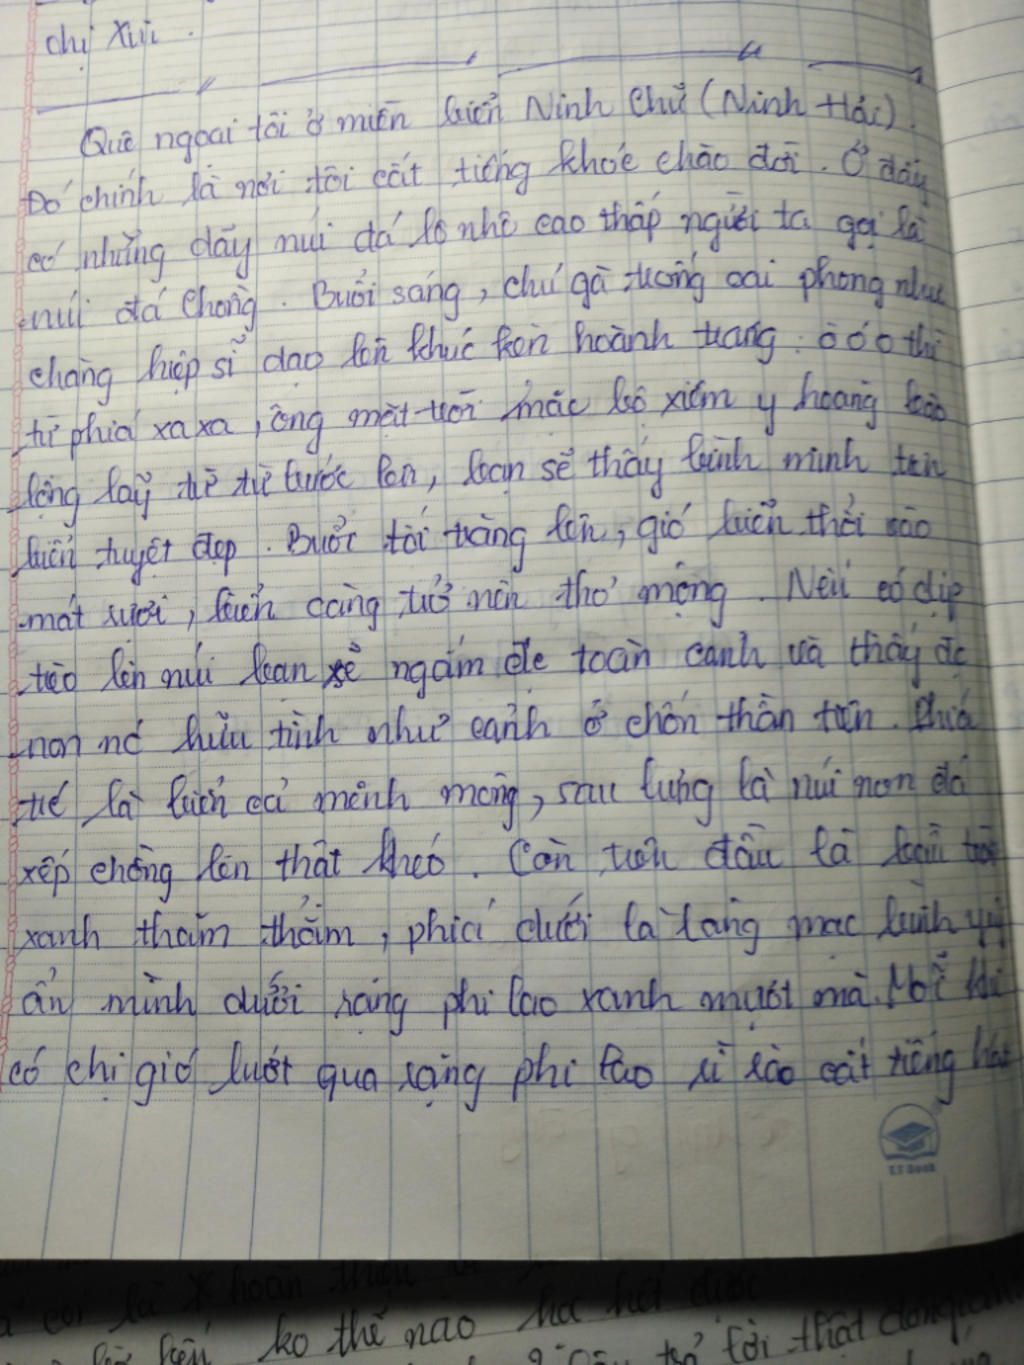 chị Xúi.
Quê ngoại tôi ở miền biển Ninh Chữ (Ninh Hải).
Đó chính là nơi tôi cất tiếng khóc chào đời. Ở đây
có những dãy núi đá lô nhô cao thấp người ta gọi là
núi đá Chồng. Buổi sáng, chú gà trống oai phong như
chàng hiệp sĩ dạo lên khúc kèn hoành tráng: ò ó o thì
từ phía xa xa, ông mặt trời mặc bộ xiêm y hoàng bào
lộng lẫy từ từ bước lên, bạn sẽ thấy bình minh trên
biển tuyệt đẹp. Buổi tối trăng lên, gió biển thổi vào
mát rượi, biển càng trở nên thơ mộng. Nếu có dịp
trèo lên núi bạn sẽ ngắm đc toàn cảnh và thấy đc
non nc hữu tình như cảnh ở chốn thần tiên. Phía
trc là biển cả mênh mông, sau lưng là núi non đá
xếp chồng lên thật khéo. Còn trên đầu là bầu trời
xanh thăm thẳm, phía dưới là làng mạc bình yên
ẩn mình dưới rặng phi lao xanh mướt mà. Mỗi khi
có chị gió lướt qua rặng phi lao rì rào cất tiếng hát
hoàn thiện
ko thể nào học hết được
lời thật